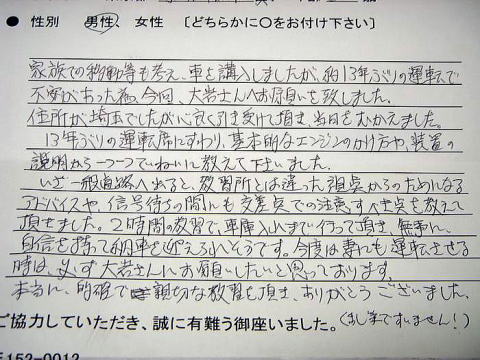 ● 性別 男性、 女性 〔どちらかに○をお付け下さい〕
家族での移動等も考え、車を購入しましたが、約13年ぶりの運転で
不安があった為、今回、大岩さんへお願いを致しました。
住所が埼玉でしたが心良く引き受けて頂き当日をむかえました。
13年ぶりの運転席にすわり、基本的なエンジンのかけ方や、装置の
説明から一つ一つていねいに教えて下さいました。
いざ一般道路へ出ると、教習所とは違った視点からのためになる
アドバイスや、信号待ちの間にも交差点での注意すべき点を教えて
頂きました。2時間の教習で、車庫入れまで行って頂き、無事に、
自信を持って納車を迎えられそうです。今度は妻にも運転させる
時は、必ず大岩さんにお願いしたいと思っております。
本当に、的確で親切な教習を頂き、ありがとうございました。
ご協力していただき、誠に有難う御座いました。(乱筆ですいません!)
〒152-0012